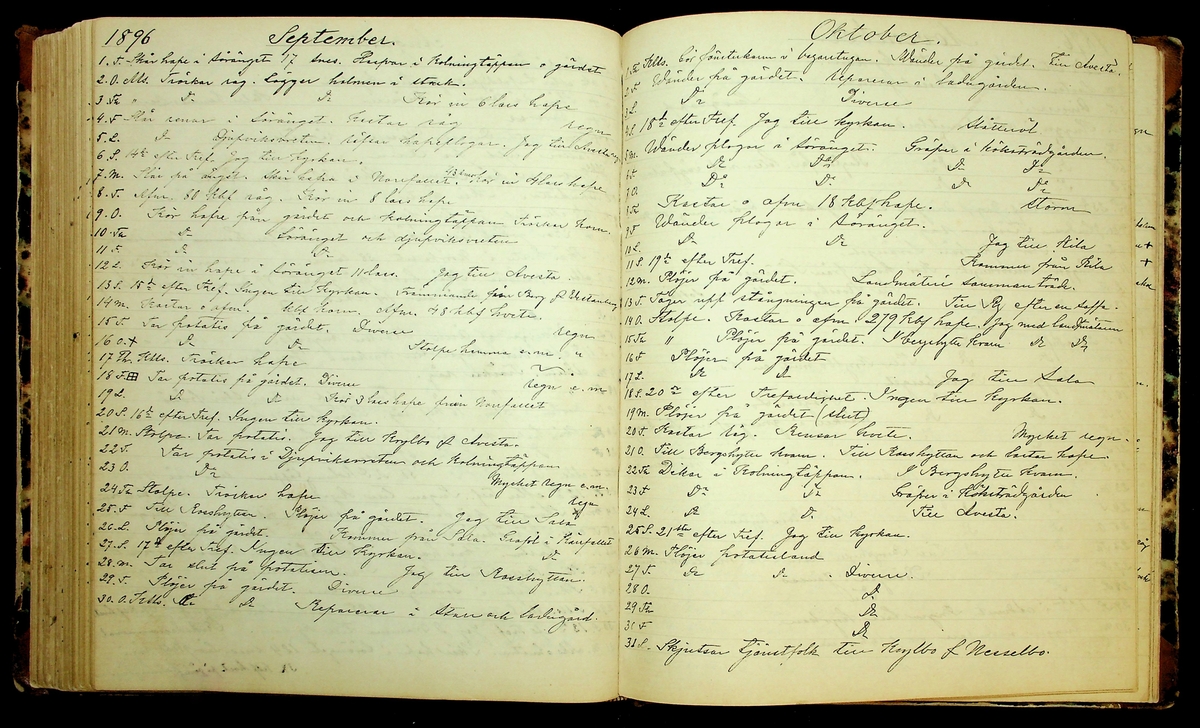 1896 September.
1. T. Skär hafre i Söränget 17 snes. Harfvar i Kolningtäppan o gärdet
2. O. Mts. Tröskar råg. Lägger halmen i stack.
3. Th " Do Do Kör in 6 lass hafre
4. F Slår renar i Söränget. Kastar råg regn
5. L. Do Djupviksvreten. Jag till Avesta
6. S. 14de efter Tref. Jag till kyrkan.
7. M. Slår på änget. Skär hafra i Norrfallet. Kör in 4 lass hafre
8. T. Afm. 30 kbf råg. Kör in 8 lass hafre
9. O. Kör hafre från gärdet och Kolningtäppan. Tröskar korn.
10. Th Do Söränget och djupviksvreten
11. F Do Do
12 L. Kör in hafre i Söränget 11 lass. Jag till Avesta
13 S. 15de efter Tref. Ingen till kyrkan. Främmande från Berg
14 m. Kastar o afm. kbf korn. Afm. 48 kbf hvete.
15 T. Tar potatis på gärdet. Diverse regn
16 O. + Do Do Stolpe hemma e.m. "
17 Th. Klls. Tröskar hafre
18 F. Tar potatis på gärdet. Diverse Regn e.m.
19 L. Do Do Kör 3 lass hafre från Norrfallet
20 S. 16de efter Tref. Ingen till kyrkan.
21 m. Stolpe. Tar potatis. Jag till Krylbo & Avesta.
22 T. Tar potatis i Djupviksvreten och Kolningtäppan
23 O. Do Mycket regn e.m.
24 Th Stolpe. Tröskar hafre regn
25. F. Till Rosshyttan. Plöjer på gärdet. Jag till Sala
26. L. Plöjer på gärdet. Kommer från Sala.
27. S. 17de efter Tref. Ingen till kyrkan. Do
28. m. Tar slut på potatisen. Jag till Rosshyttan.
29. T. Plöjer på gärdet. Diverse
30. O. Klls. Do Do Reparerar i stall och ladugård.
Oktober.
1. Th Klls. i bagarstugan. Vänder på gärdet. Till Avesta.
2. F Vänder på gärdet. Reparerar i ladugården.
3. L. Do Diverse
4. S. 18de efter Tref. Jag till kyrkan. Slåtteröl
5. m. Wänder plogar i Söränget. Gräfver i Köksträdgården.
6. T Do Do Do Do
7. O. Do Do Do Do
8. Th Kastar o afm 18 kbf hafre. Storm
9. F Wänder plogar i Söränget.
10 L. Do Do Jag till Kila
11 S. 19de efter Tref. Kommer från Kila
12 m. Plöjer på gärdet. Landtmäteri sammanträde.
13 T. Säger upp stängningen på gärdet. Till By efter en soffa.
14 O. Stolpe. Kastar o afm. 279 kbf hafre. Jag med landtmätaren
15 Th " Plöjer på gärdet. I bergshytte kvarn Do Do
16 F Plöjer på gärdet
17 L. Do Do Jag till Sala
18 S. 20de efter Trefaldighet. Ingen till kyrkan.
19 m. Plöjer på gärdet (slut)
20 T. Kastar råg. Rensar hvete. Mycket regn.
21 O. Till Bergshytte kvarn. Till Rosshyttan och lastar hafre.
22 Th Dikar i Kolningtäppan. I Bergshytte kvarn.
23 F Do Do Gräfver i Köksträdgården
24 L Do Do Till Avesta.
25 S. 21sta efter Tref. Jag till kyrkan.
26 m. Plöjer potatisland
27 T Do Do Diverse.
28 O. Do
29 Th Do
30 F Do
31 L. Skjutsar tjänstfolk till Krylbo & Nesselbo.